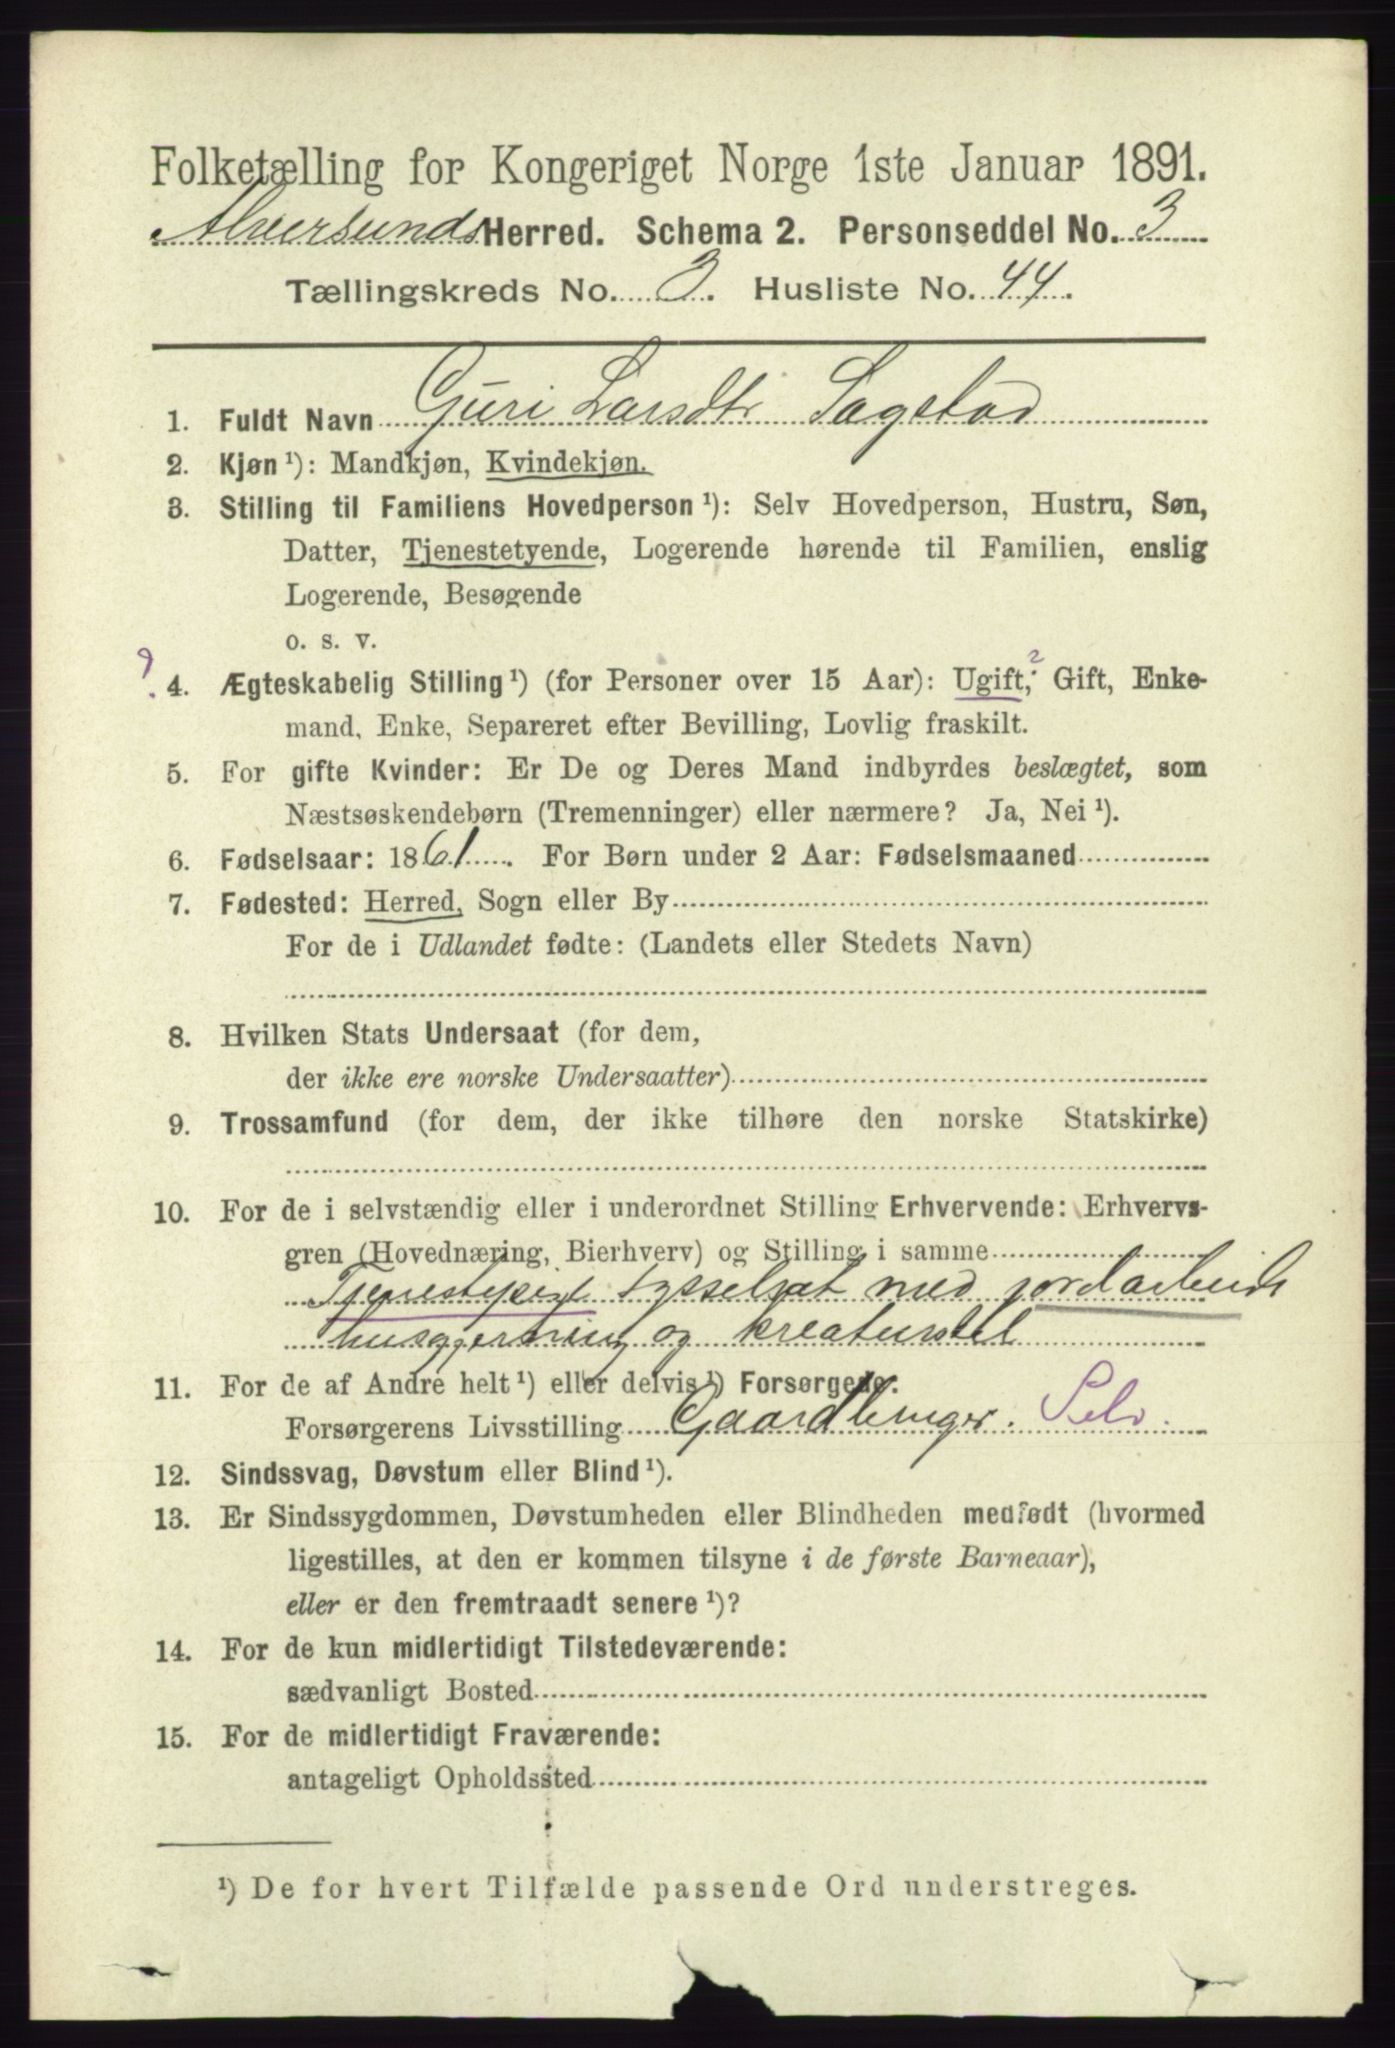 Folketælling for Kongeriget Norge 1ste Januar 1891.
Alversunds Herred. Schema 2. Personseddel No. 3
Tællingskreds No. 3. Husliste No. 44.
1. Fuldt Navn Guri Larsdtr Sagstad
2. Kjøn ¹): Mandkjøn, Kvindekjøn.
3. Stilling til Familiens Hovedperson ¹): Selv Hovedperson, Hustru, Søn,
Datter, Tjenestetyende, Logerende hørende til Familien, enslig
Logerende, Besøgende
o. s. v.
? 4. Ægteskabelig Stilling ¹) (for Personer over 15 Aar): Ugift, ? Gift, Enke-
mand, Enke, Separeret efter Bevilling, Lovlig fraskilt.
5. For gifte Kvinder: Er De og Deres Mand indbyrdes beslægtet, som
Næstsøskendebørn (Tremenninger) eller nærmere? Ja, Nei ¹).
6. Fødselsaar: 1861. For Børn under 2 Aar: Fødselsmaaned
7. Fødested: Herred, Sogn eller By
For de i Udlandet fødte: (Landets eller Stedets Navn)
8. Hvilken Stats Undersaat (for dem,
der ikke ere norske Undersaatter)
9. Trossamfund (for dem, der ikke tilhøre den norske Statskirke)
10. For de i selvstændig eller i underordnet Stilling Erhvervende: Erhvervs-
gren (Hovednæring, Bierhverv) og Stilling i samme
Tjenestepige sysselsat med jordarbeide
husgjerning og kreaturstel
11. For de af Andre helt ¹) eller delvis ¹) Forsørgede:
Forsørgerens Livsstilling Gaardbruger. Selv.
12. Sindssvag, Døvstum eller Blind ¹).
13. Er Sindssygdommen, Døvstumheden eller Blindheden medfødt (hvormed
ligestilles, at den er kommen tilsyne i de første Barneaar),
eller er den fremtraadt senere ¹)?
14. For de kun midlertidigt Tilstedeværende:
sædvanligt Bosted
15. For de midlertidigt Fraværende:
antageligt Opholdssted
¹) De for hvert Tilfælde passende Ord understreges.